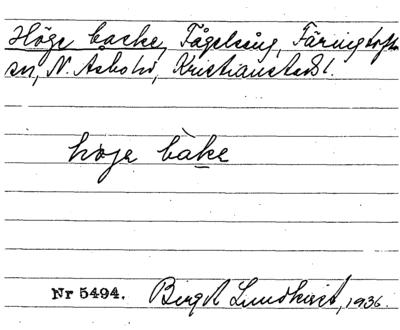 Höge backe, Fågelsång, Färingtofta
sn, N. Åsbo hd, Kristianstads l.
höje bake
Nr 5494. Birgit Lundkvist, 1936.